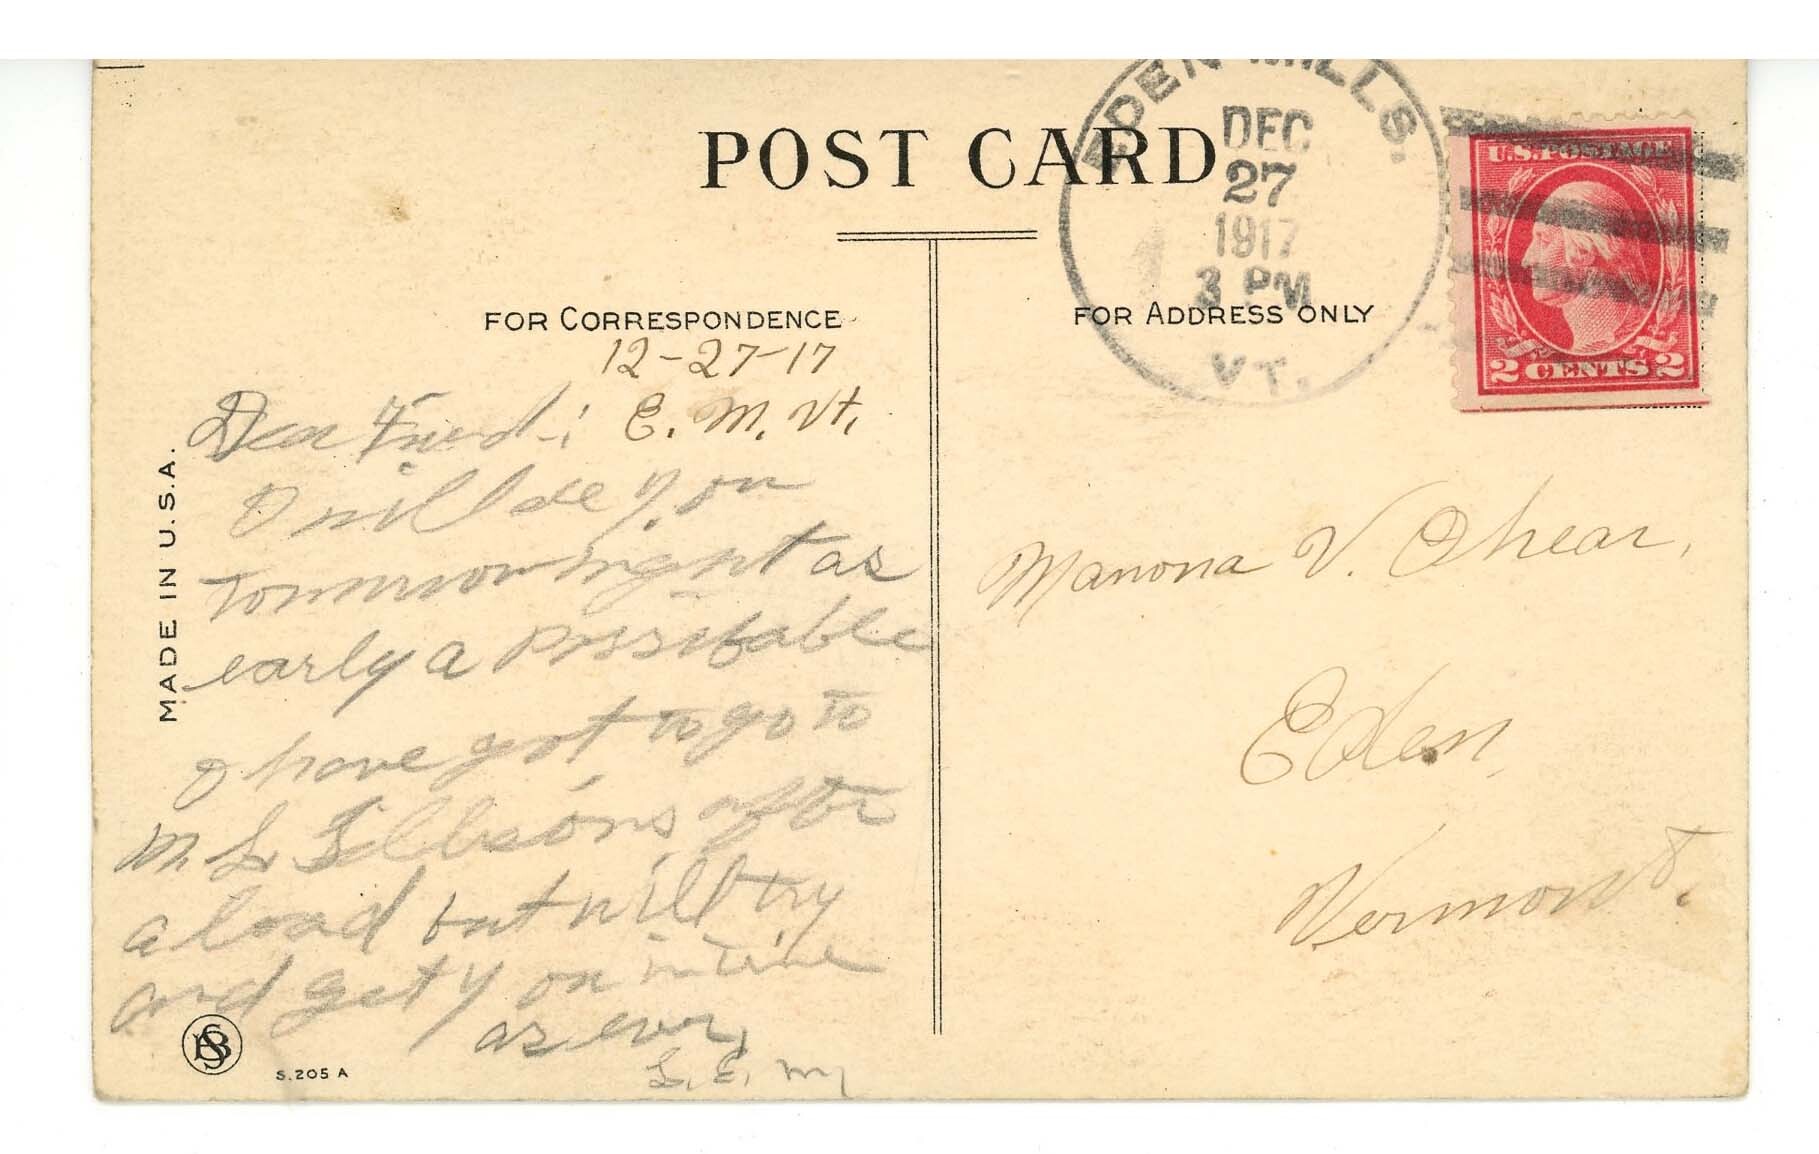 POST CARD
EDEN MILLS.
DEC
27
1917
3 PM
VT.
U.S. POSTAGE
2 CENTS 2
FOR CORRESPONDENCE
FOR ADDRESS ONLY
MADE IN U.S.A.
12-27-17
E. M. Vt.
Dear Friend:
I will see y on
tommrow night as
early a possibable
I have got to go to
M L after
a load but will try
and get y on in time
as ever,
L. E. M
Manona V. Shear,
Eden,
Vermont.
S.205 A